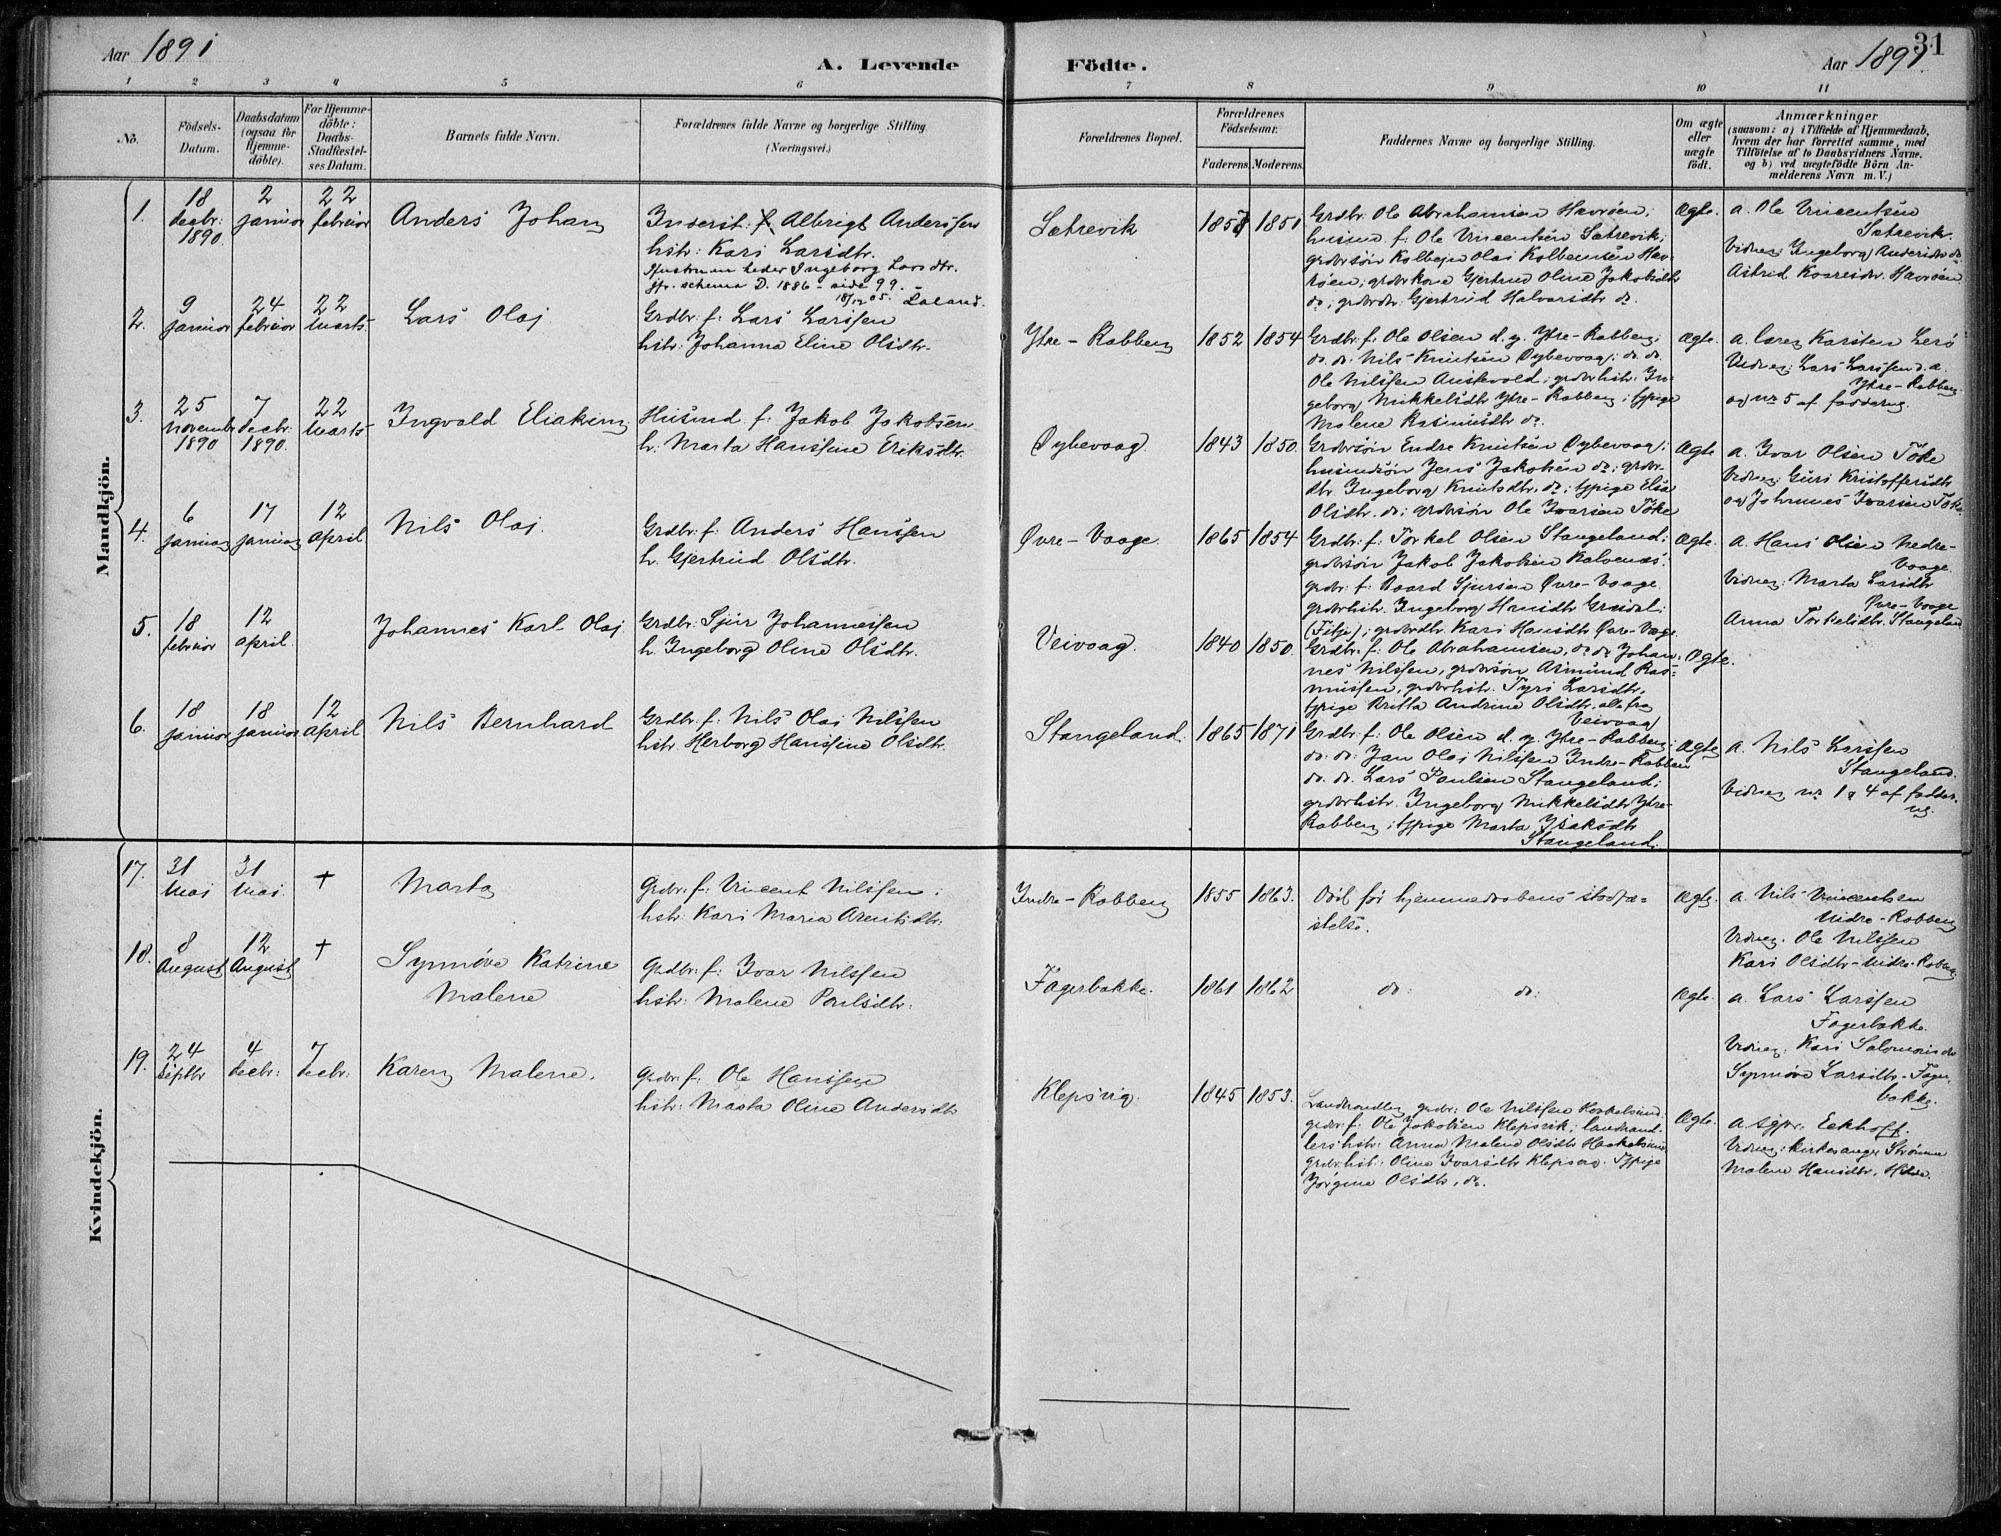 Aar 1891
A. Levende
Födte.
Aar 1891
31
1 2 3 4 5 6 7 8 9 10 11
No.
Födsels-Datum.
Daabsdatum (ogsaa for Hjemme-döbte).
For Hjemme-döbte: Daabs-Stadfæstel-ses Datum.
Barnets fulde Navn.
Forældrenes fulde Navne og borgerlige Stilling. (Næringsvei.)
Forældrenes Bopæl.
Forældrenes Födselsaar.
Faderens. Moderens.
Faddernes Navne og borgerlige Stilling.
Om ægte eller uægte födt.
Anmærkninger
(saasom: a) i Tilfælde af Hjemmedaab,
hvem der har forrettet samme, med
Tilföielse af to Daabsvidners Navne.
og b) ved uægtefödte Börn An-
melderens Navn m. V.)
Mandkjön.
1.
18 decbr: 1890.
2 januar
22 februar
Anders Johan
Inderst: f. Albrigt Anderssen
hstr: Kari Larsdtr.
Hustruen heder Ingeborg Larsdtr.
jfr. schema D. 1886 - side 99.
18/12 05. Laland.
Sætrevik
1857 1851
Grdbr. Ole Abrahamsen Havrøen;
husmd. f: Ole Vincentsen Sætrevik;
grdbrsön Kolbejn Olai Kolbeinsen Hav-
røen; grdbrkone Gjertrud Oline Jakobsdtr
do; grdbrdtr. Gjertrud Halvarsdtr do.
Ægte.
a. Ole Vincentsen
Sætrevik.
Vidner: Ingeborg Andersdtr do
Astrid Knaresdtr. Havrøen
2.
9 januar
24 februar
22 Marts
Lars Olaj
Grdbr: f: Lars Larssen
hstr: Johanna Eline Olsdtr-
Ytre-Rabben
1852 1854
Grdbr. f: Ole Olsen d. y. Ytre-Rabben;
do. do: Nils Knutsen Dybevaag; do do.
Ole Nilssen Austevold; grdbrhstr. In-
geborg Mikkelsdtr Ytre-Rabben; tjpige
Malene Rasmusdtr do.
Ægte.
a. lærer Karsten Lerø
Vidner: Lars Larssen d. æ.
Ytre-Rabben
og no 5 af fadderne.
3.
25 novembr 1890
7 decbr: 1890.
22 Marts
Ingvald Eliakim
Husmd. f: Jakob Jakobsen
h. Marta Hanssine Eriksdtr.
Dybevaag.
1843 1850.
Grdbrsön Endre Knutsen Dybevaag;
husmdsön Jens Jakobsen do; grdbr-
dtr. Ingeborg Knutsdtr. do; tjpige Elsa
Olsdtr. do; grdbrsön Ole Ivarsen Tøke
Ægte
a. Ivar Olsen Tøke
Vidner: Guri Kristoffersdtr
og Johannes Ivarsen Tøke
4.
6 januar
17 januar
12 April
Nils Olaj.
Grdbr: f: Anders Hanssen
h. Gjertrud Olsdtr.
Øvre-Vaage.
1865 1854
Grdbr: f: Torkel Olsen Stangeland;
grdbrsön Jakob Jakobsen Kalvenæs;
grdbr: f: Baard Sjursen Øvre-Vaage
grdbrhstr. Ingeborg Hansdtr Grasdal;
(Fitje); grdbrdtr. Kari Hansdtr Øvre-Vaage
Ægte.
a. Hans Olsen Nedre-
Vaage.
Vidner: Marta Larsdtr
Øvre-Vaage
Anna Torkelsdtr. Stangeland
5.
18 februar
12 april.
Johannes Karl Olaj
Grdbr: Sjur Johannessen
h. Ingeborg Oline Olsdtr.
Veivaag.
1840 1850.
Grdbr. f: Ole Abrahamsen, do do Johan-
nes Nilssen, grdbrsön Asmund Ras-
mussen, grdbrhstr. Tyri Larsdtr,
tjpige Britta Andrine Olsdtr. alle fra
Veivaag
Ægte.
6.
18 januar
18 januar
12 April
Nils Bernhard
Grdbr: f: Nils Olai Nilssen
hstr. Herborg Hanssine Olsdtr.
Stangeland.
1865 1871
Grdbr: f: Ole Olsen d. y. Ytre-Rabben;
do. do: Jan Olaj Nilssen Indre-Rabben
do. do. Lars Paulsen Stangeland;
grdbrhstr. Ingeborg Mikkelsdtr Ytre-
Rabben; tjpige Marta Isaksdtr
Stangeland.
Ægte
a. Nils Larssen
Stangeland.
Vidner no 1 & 4 af fadder-
ne.
Kvindekjön.
17.
31 Maj
31 Maj.
+
Marta
Grdbr: f: Vincent Nilssen;
hstr: Kari Maria Arentsdtr:
Indre-Rabben
1855 1863.
Død før hjemmedaabens stadfæ-
stelse.
Ægte.
a. Nils Vincentsen
Indre-Rabben
Vidner. Ole Nilssen
Kari Olsdtr-Indre-Rabben
18.
8 August
12 August
+
Synnøve Katrine
Malene
Grdbr: f: Ivar Nilssen
hstr: Malene Paulsdtr:
Fagerbakke.
1861 1862
do: do:
Ægte.
a. Lars Larssen
Fagerbakke.
Vidner: Kari Salomonsdtr
Synnøve Larsdtr-Fager-
bakke.
19.
24 Septbr
4 decbr:
7 decbr:
Karen Malene.
Grdbr: f: Ole Hanssen
hstr: Marta Oline Andersdtr
Klepsvig.
1845 1853.
Landhandler, grdbr: Ole Nilssen Haakelsund;
grdbr: f: Ole Jakobsen Klepsvik; landhand-
lershstr: Anna Malene Olsdtr Haakelsund,
grdbr.hst: Oline Ivarsdtr Klepsvig. Tjpige
Jørgine Olsdtr, do.
Ægte.
a. sgpr. Eckhoff.
Vidner: kirkesanger Strømme
Malene Hansdtr,